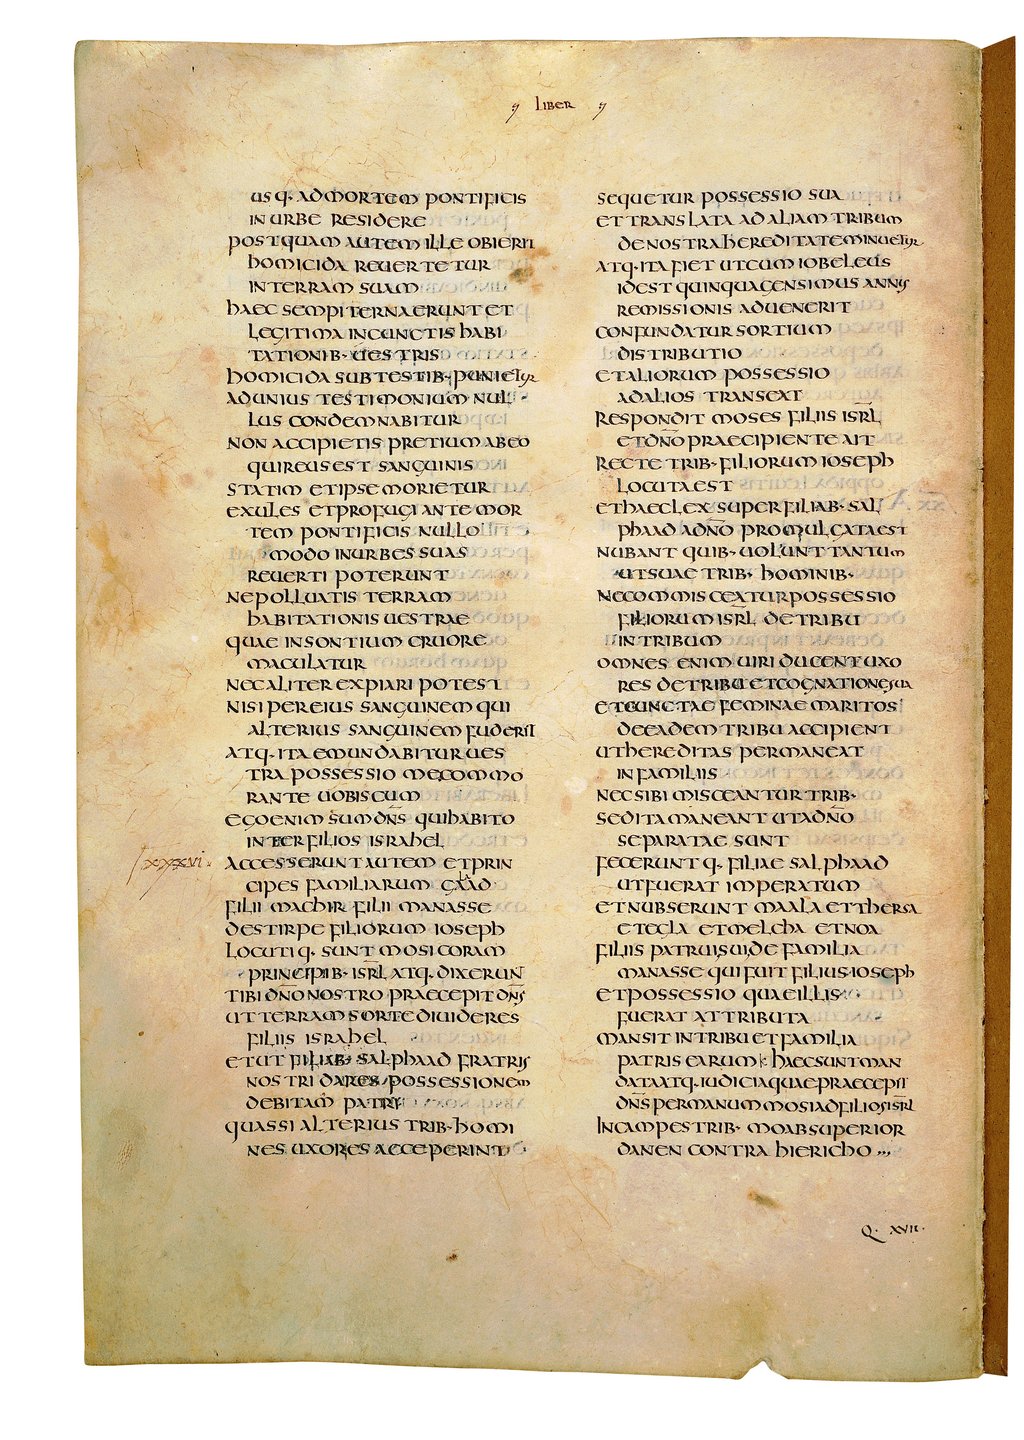 LIBER
USQ· ADMORTEM PONTIFICIS
IN URBE RESIDERE
POSTQUAM AUTEM ILLE OBIERIT
HOMICIDA REUERTETUR
IN TERRAM SUAM
HAEC SEMPITERNA ERUNT ET
LEGITIMA INCUNCTIS HABI
TATIONIB· UESTRIS
HOMICIDA SUB TESTIB· PUNIETUR
AD UNIUS TESTIMONIUM NUL
LUS CONDEMNABITUR
NON ACCIPIETIS PRETIUM ABEO
QUI REUS EST SANGUINIS
STATIM ET IPSE MORIETUR
EXULES ET PROFUGI ANTE MOR
TEM PONTIFICIS NULLO
MODO IN URBES SUAS
REUERTI POTERUNT
NE POLLUATIS TERRAM
HABITATIONIS UESTRAE
QUAE INSONTIUM CRUORE
MACULATUR
NEC ALITER EXPIARI POTEST
NISI PER EIUS SANGUINEM QUI
ALTERIUS SANGUINEM FUDERIT
ATQ· ITA EMUNDABITUR UES
TRA POSSESSIO ME COMMO
RANTE UOBISCUM
EGO ENIM SUM DN̄S QUI HABITO
INTER FILIOS ISRAHEL
LXXXVI· ACCESSERUNT AUTEM ET PRIN
CIPES FAMILIARUM GALAAD
FILII MACHIR FILII MANASSE
DE STIRPE FILIORUM IOSEPH
LOCUTIQ· SUNT MOSI CORAM
PRINCIPIB· ISRL̄ ATQ· DIXERUNT
TIBI DN̄O NOSTRO PRAECEPIT DN̄S
UT TERRAM SORTE DIUIDERES
FILIIS ISRAHEL
ET UT FILIAB· SALPHAAD FRATRIS
NOSTRI DARES POSSESSIONEM
DEBITAM PATRI
QUAS SI ALTERIUS TRIB· HOMI
NES UXORES ACCEPERINT
SEQUETUR POSSESSIO SUA
ET TRANSLATA AD ALIAM TRIBUM
DE NOSTRA HEREDITATE MINUETUR
ATQ· ITA FIET UT CUM IOBELEUS
ID EST QUINQUAGENSIMUS ANNUS
REMISSIONIS ADUENERIT
CONFUNDATUR SORTIUM
DISTRIBUTIO
ET ALIORUM POSSESSIO
AD ALIOS TRANSEAT
RESPONDIT MOSES FILIIS ISRL̄
ET DN̄O PRAECIPIENTE AIT
RECTE TRIB· FILIORUM IOSEPH
LOCUTA EST
ET HAEC LEX SUPER FILIAB· SAL
PHAAD A DN̄O PROMULGATA EST
NUBANT QUIB· UOLUNT TANTUM
UT SUAE TRIB· HOMINIB·
NE COMMISCEATUR POSSESSIO
FILIORUM ISRL̄ DE TRIBU
IN TRIBUM
OMNES ENIM UIRI DUCENT UXO
RES DE TRIBU ET COGNATIONE SUA
ET CUNCTAE FEMINAE MARITOS
DE EADEM TRIBU ACCIPIENT
UT HEREDITAS PERMANEAT
IN FAMILIIS
NEC SIBI MISCEANTUR TRIB·
SED ITA MANEANT UT A DN̄O
SEPARATAE SUNT
FECERUNTQ· FILIAE SALPHAAD
UT FUERAT IMPERATUM
ET NUBSERUNT MAALA ET THERSA
ET EGLA ET MELCHA ET NOA
FILIIS PATRUI SUI DE FAMILIA
MANASSE QUI FUIT FILIUS IOSEPH
ET POSSESSIO QUAE ILLIS
FUERAT ATTRIBUTA
MANSIT IN TRIBU ET FAMILIA
PATRIS EARUM HAEC SUNT MAN
DATA ATQ· IUDICIA QUAE PRAECEPIT
DN̄S PER MANUM MOSI AD FILIOS ISRL̄
IN CAMPESTRIB· MOAB SUPER IOR
DANEN CONTRA HIERICHO
Q· XVII·